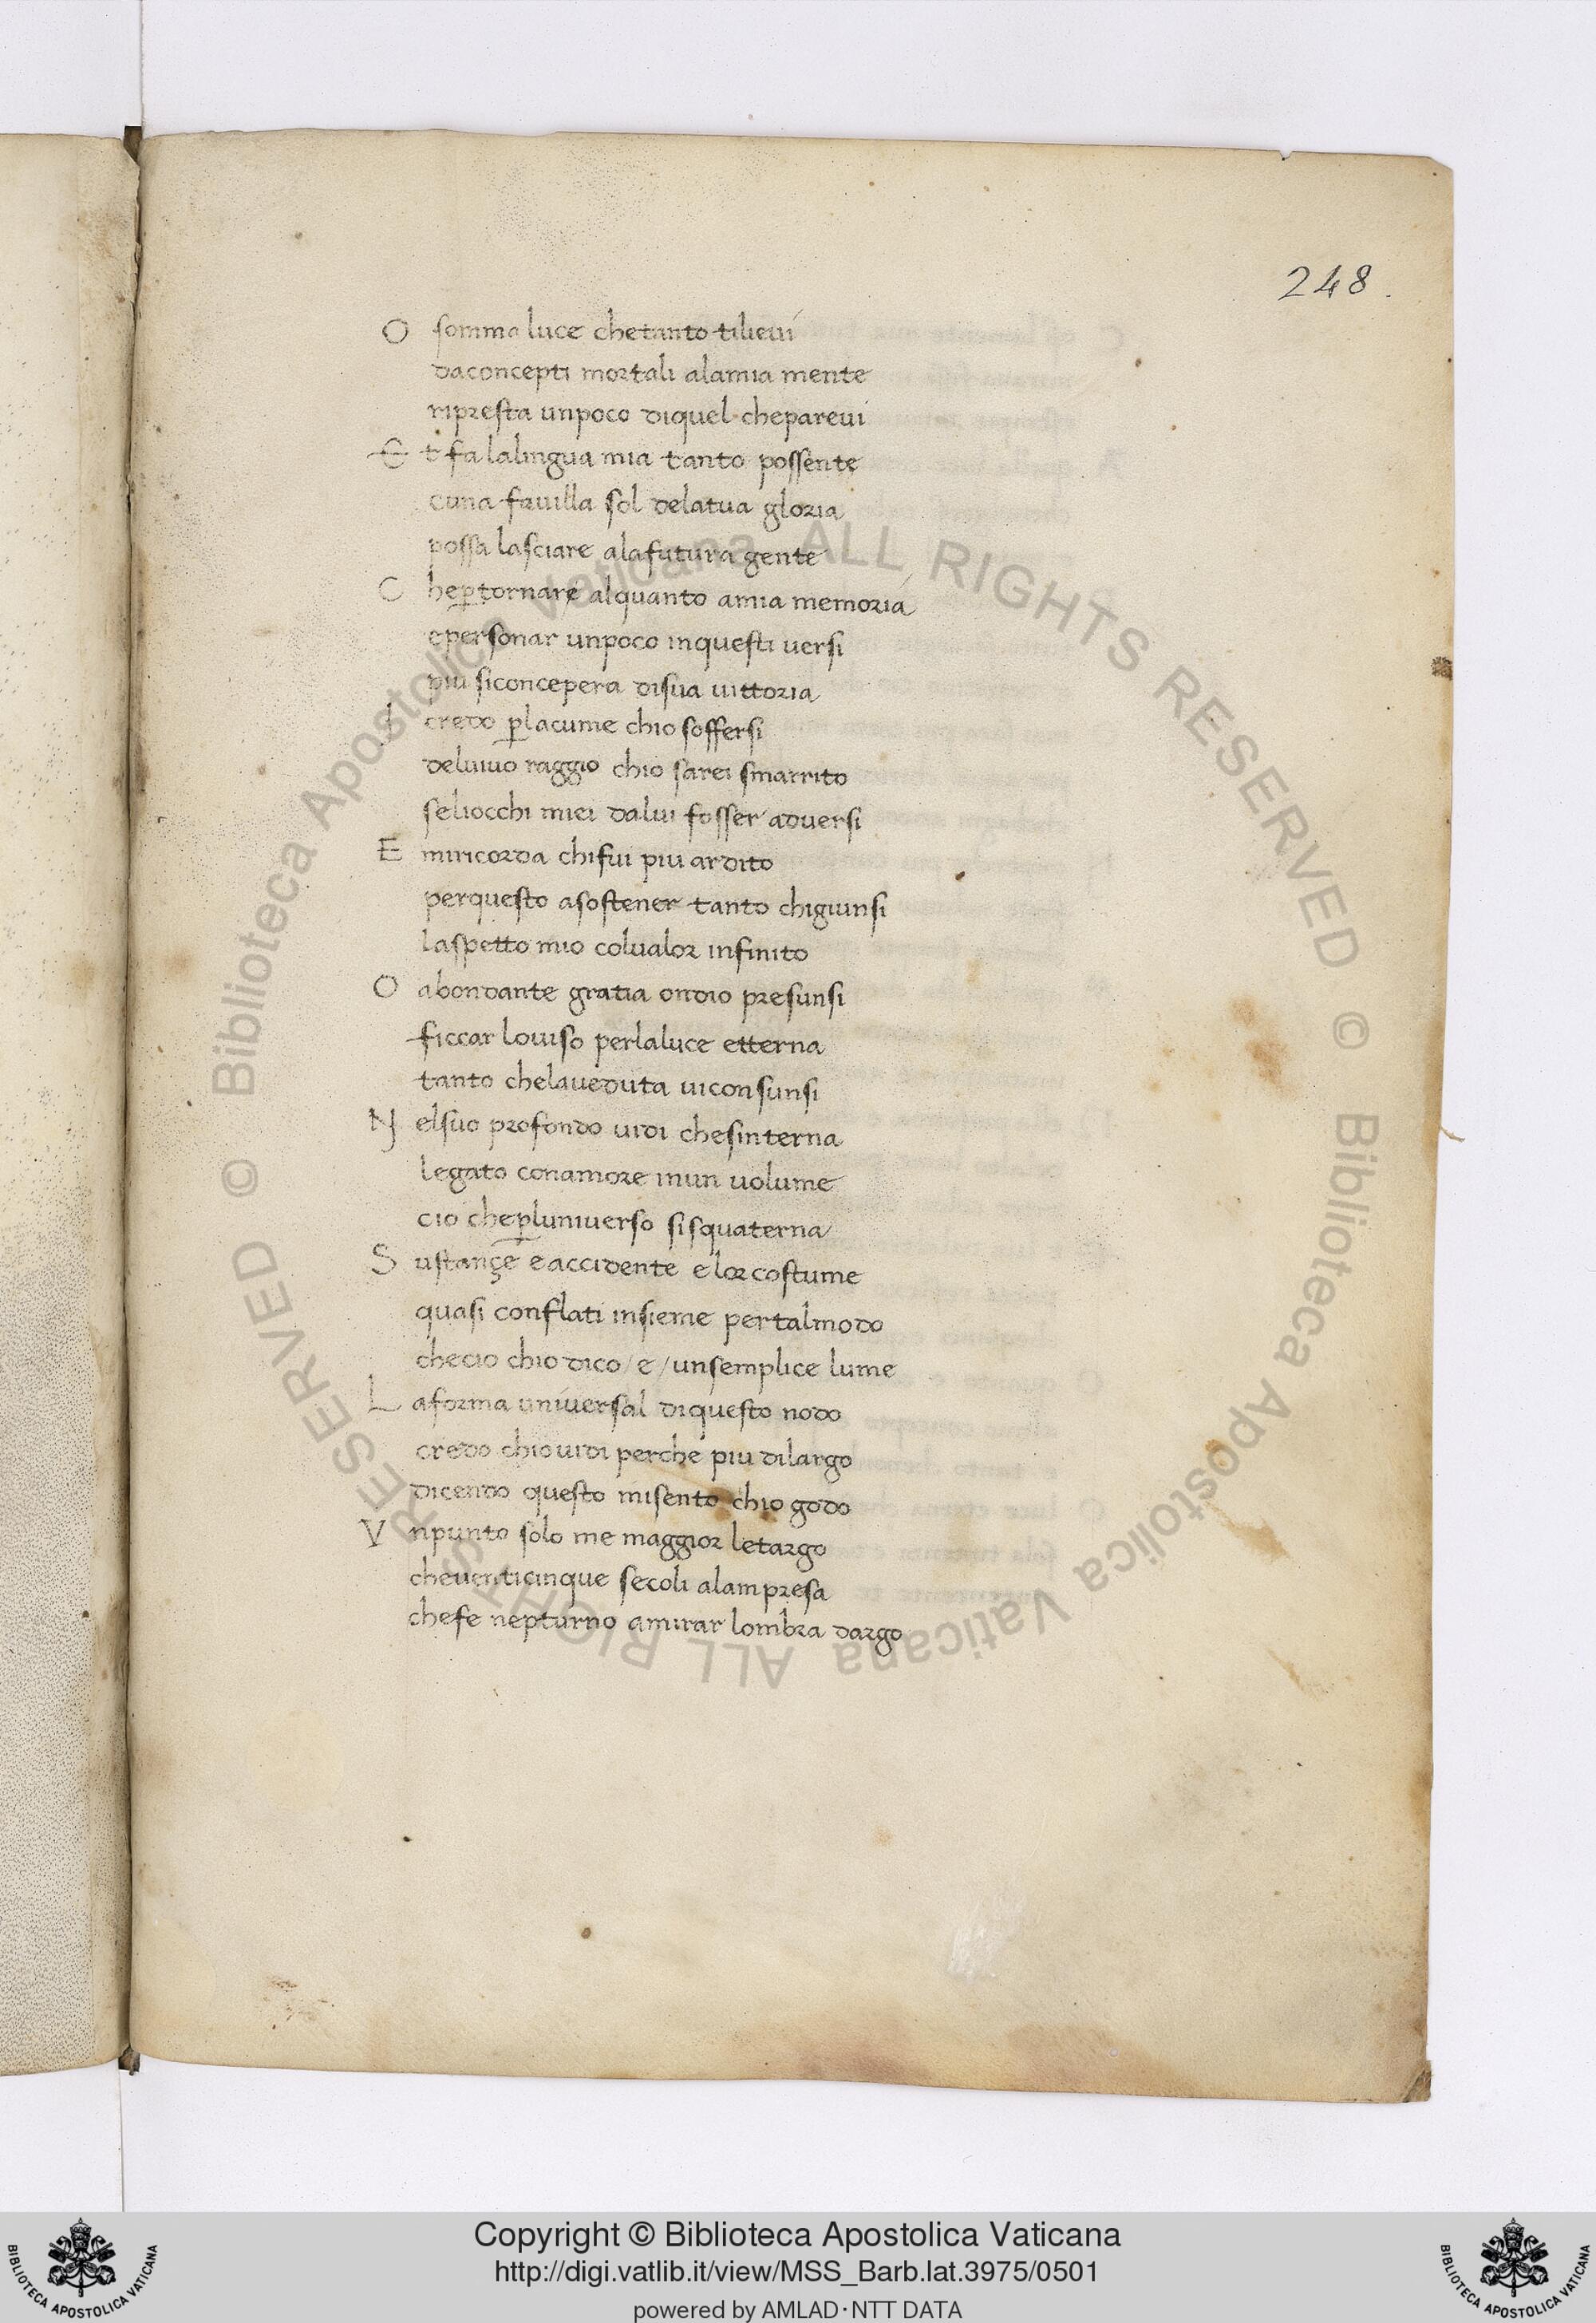 248.
O somma luce chetanto tilievi
daconcepti mortali alamia mente
ripresta unpoco diquel cheparevi
Et fa lalingua mia tanto possente
cuna favilla sol delatua gloria
possa lasciare alafutura gente
C heꝑtornare alquanto amia memoria
epersonar unpoco inquesti versi
piu siconcepera disua vittoria
I credo ꝑlacume chio soffersi
delvivo raggio chio sarei smarrito
seliocchi miei dalui fosser adversi
E miricorda chifui piu ardito
perquesto asostener tanto chigiunsi
laspetto mio colvalor infinito
O abondante gratia ondio presunsi
ficcar loviso perlaluce etterna
tanto chelaveduta viconsunsi
N elsuo profondo vidi chesinterna
legato conamore inun volume
cio cheꝑluniverso sisquaterna
S ustançe e accidente e lor costume
quasi conflati insieme pertalmodo
checio chio dico / e / unsemplice lume
L aforma universal diquesto nodo
credo chiovidi perche piu dilargo
dicendo questo misento chio godo
V npunto solo me maggior letargo
cheventicinque secoli alampresa
chefe nepturno amirar lombra dargo
© Biblioteca Apostolica Vaticana ALL RIGHTS RESERVED © Biblioteca Apostolica Vaticana ALL RIGHTS RESERVED
Copyright © Biblioteca Apostolica Vaticana
http://digi.vatlib.it/view/MSS_Barb.lat.3975/0501
powered by AMLAD·NTT DATA
BIBLIOTECA APOSTOLICA VATICANA
BIBLIOTECA APOSTOLICA VATICANA